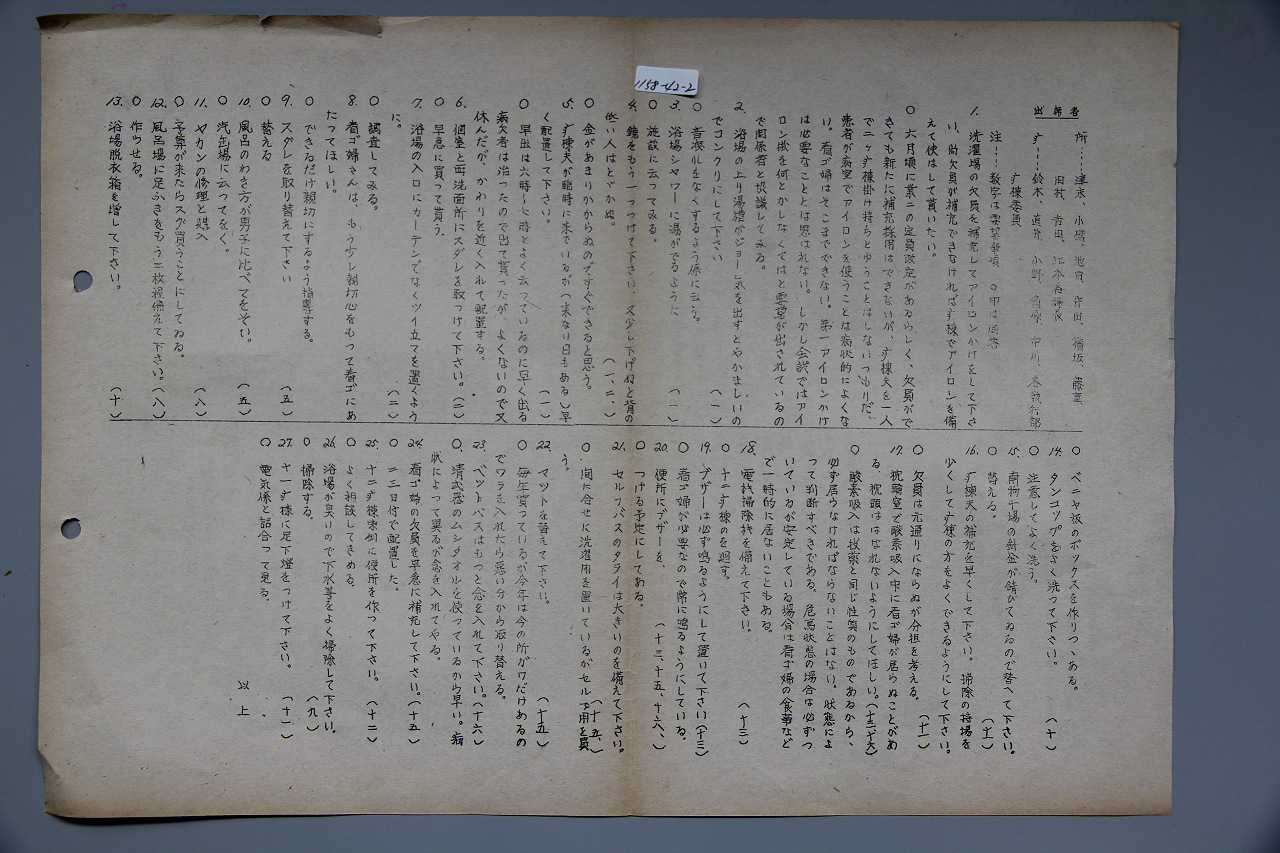 1158-42-2
出席者
所……津永、小沼、池田、作田、横坂、藤室、
田村、吉田、江本各婦長
疒……鈴木、直井、小野、角原、市川、各執行部
疒棟委員
注……数字は要望事項 ○印は回答
1. 洗濯場の欠員を補充してアイロンかけをして下さ
い、尚欠員が補充できなければ疒棟でアイロンを備
えて使はして貰いたい。
○ 六月頃に業二の定員改定があるらしく、欠員がで
きても新たに補充採用はできないが、疒棟夫を一人
で二ヶ疒棟掛け持ちとゆうことはしないつもりだ、
患者が病室でアイロンを使うことは病状的によくな
い。看ゴ婦はそこまでできない。第一アイロンかけ
は必要なこととは思はれない。しかし会議ではアイ
ロン掛を何とかしなくてはと要望が出されているの
で関係者と協議してみる。
2. 浴場の上り湯槽がジョー気を出すとやかましいの
でコンクリにして下さい (一)
○ 音波れをなくするよう係に云う。
3. 浴場シャワーに湯がでるように (一)
○ 施設に云ってみる。
4. 鏡をもう一つつけて下さい、又少し下げぬと背の
低い人はとどかぬ。 (一、二、)
○ 金があまりかからぬのですぐできると思う。
5. 疒棟夫が臨時に来ているが(来ない日もある)早
く配置して下さい。 (一)
○ 早出は六時~七時とよく云っているのに早く出る
病欠者は治ったので出て貰ったが、よくないので又
休んだが、かわりを近く入れて配置する。
6. 個室と西洗面所にスダレを取つけて下さい。(二)
○ 早急に買って貰う。
7. 浴場の入口にカーテンでなくツイ立てを置くよう
に。 (二)
○ 調査してみる。
8. 看ゴ婦さんは、もう少し親切心をもって看ゴにあ
たってほしい。
○ できるだけ親切にするよう指導する。
9. スダレを取り替えて下さい (五)
○ 替える
10. 風呂のわき方が男子に比べておそい。 (五)
○ 汽缶場に云っておく。
11. ヤカンの修理と購入 (八)
○ 予算が来たらスグ買うことにしてゐる。
12. 風呂場に足ふきをもう二枚程備えて下さい。(八)
○ 作らせる。
13. 浴場脱衣箱を増して下さい。 (十)
○ ベニヤ板のボックスを作りつゝある。
14. タンコップをよく洗って下さい。 (十)
○ 注意してよく洗う。
15. 南物干場の針金が錆びてゐるので替へて下さい。
○ 替える。 (十一)
16. 疒棟夫の補充を早くして下さい。掃除の持場を
少くして疒棟の方をよくできるようにして下さい。
(十一)
○ 欠員は元通りにならぬが分担を考える。
17. 枕頭室で酸素吸入中に看ゴ婦が居らぬことがあ
る、枕頭ははなれないようにしてほしい。(十三、十六)
○ 酸素吸入は投薬と同じ性質のものであるから、
必ず居らなければならないことはない。状態によ
って判断すべきである。危篤状態の場合は必ずつ
いているが安定している場合は看ゴ婦の食事など
で一時的に居ないこともある。
18. 電機掃除機を備えて下さい。 (十三)
○ 十二疒棟のを廻す。
19. ブザーは必ず鳴るようにして置いて下さい(十三)
○ 看ゴ婦が必要なので常に鳴るようにしている。
20. 便所にブザーを、 (十三、十五、十六、)
○ つける予定にしてある。
21. セルフバスのタライは大きいのを備えて下さい。
(十五、)
○ 間に合せに洗濯用を置いているがセルフ用を買
う。
22. マットを替えて下さい。 (十五)
○ 毎年買っているが今年は今の所がワだけあるの
でワラを入れたら悪い分から取り替える。
23. ベットバスはもっと念を入れて下さい。(十六)
○ 清拭器のムシタオルを使っているから早い。病
状によって異るが念を入れてやる。
24. 看ゴ婦の欠員を早急に補充して下さい。(十五)
○ 二三日付で配置した。
25. 十二疒棟東側に便所を作って下さい。 (十二)
○ よく相談してきめる。
26. 浴場が臭いので下水等をよく掃除して下さい。
○ 掃除する。 (九)
27. 十一疒棟に足下燈をつけて下さい。 (十一)
○ 電気係と話合って見る。
以上